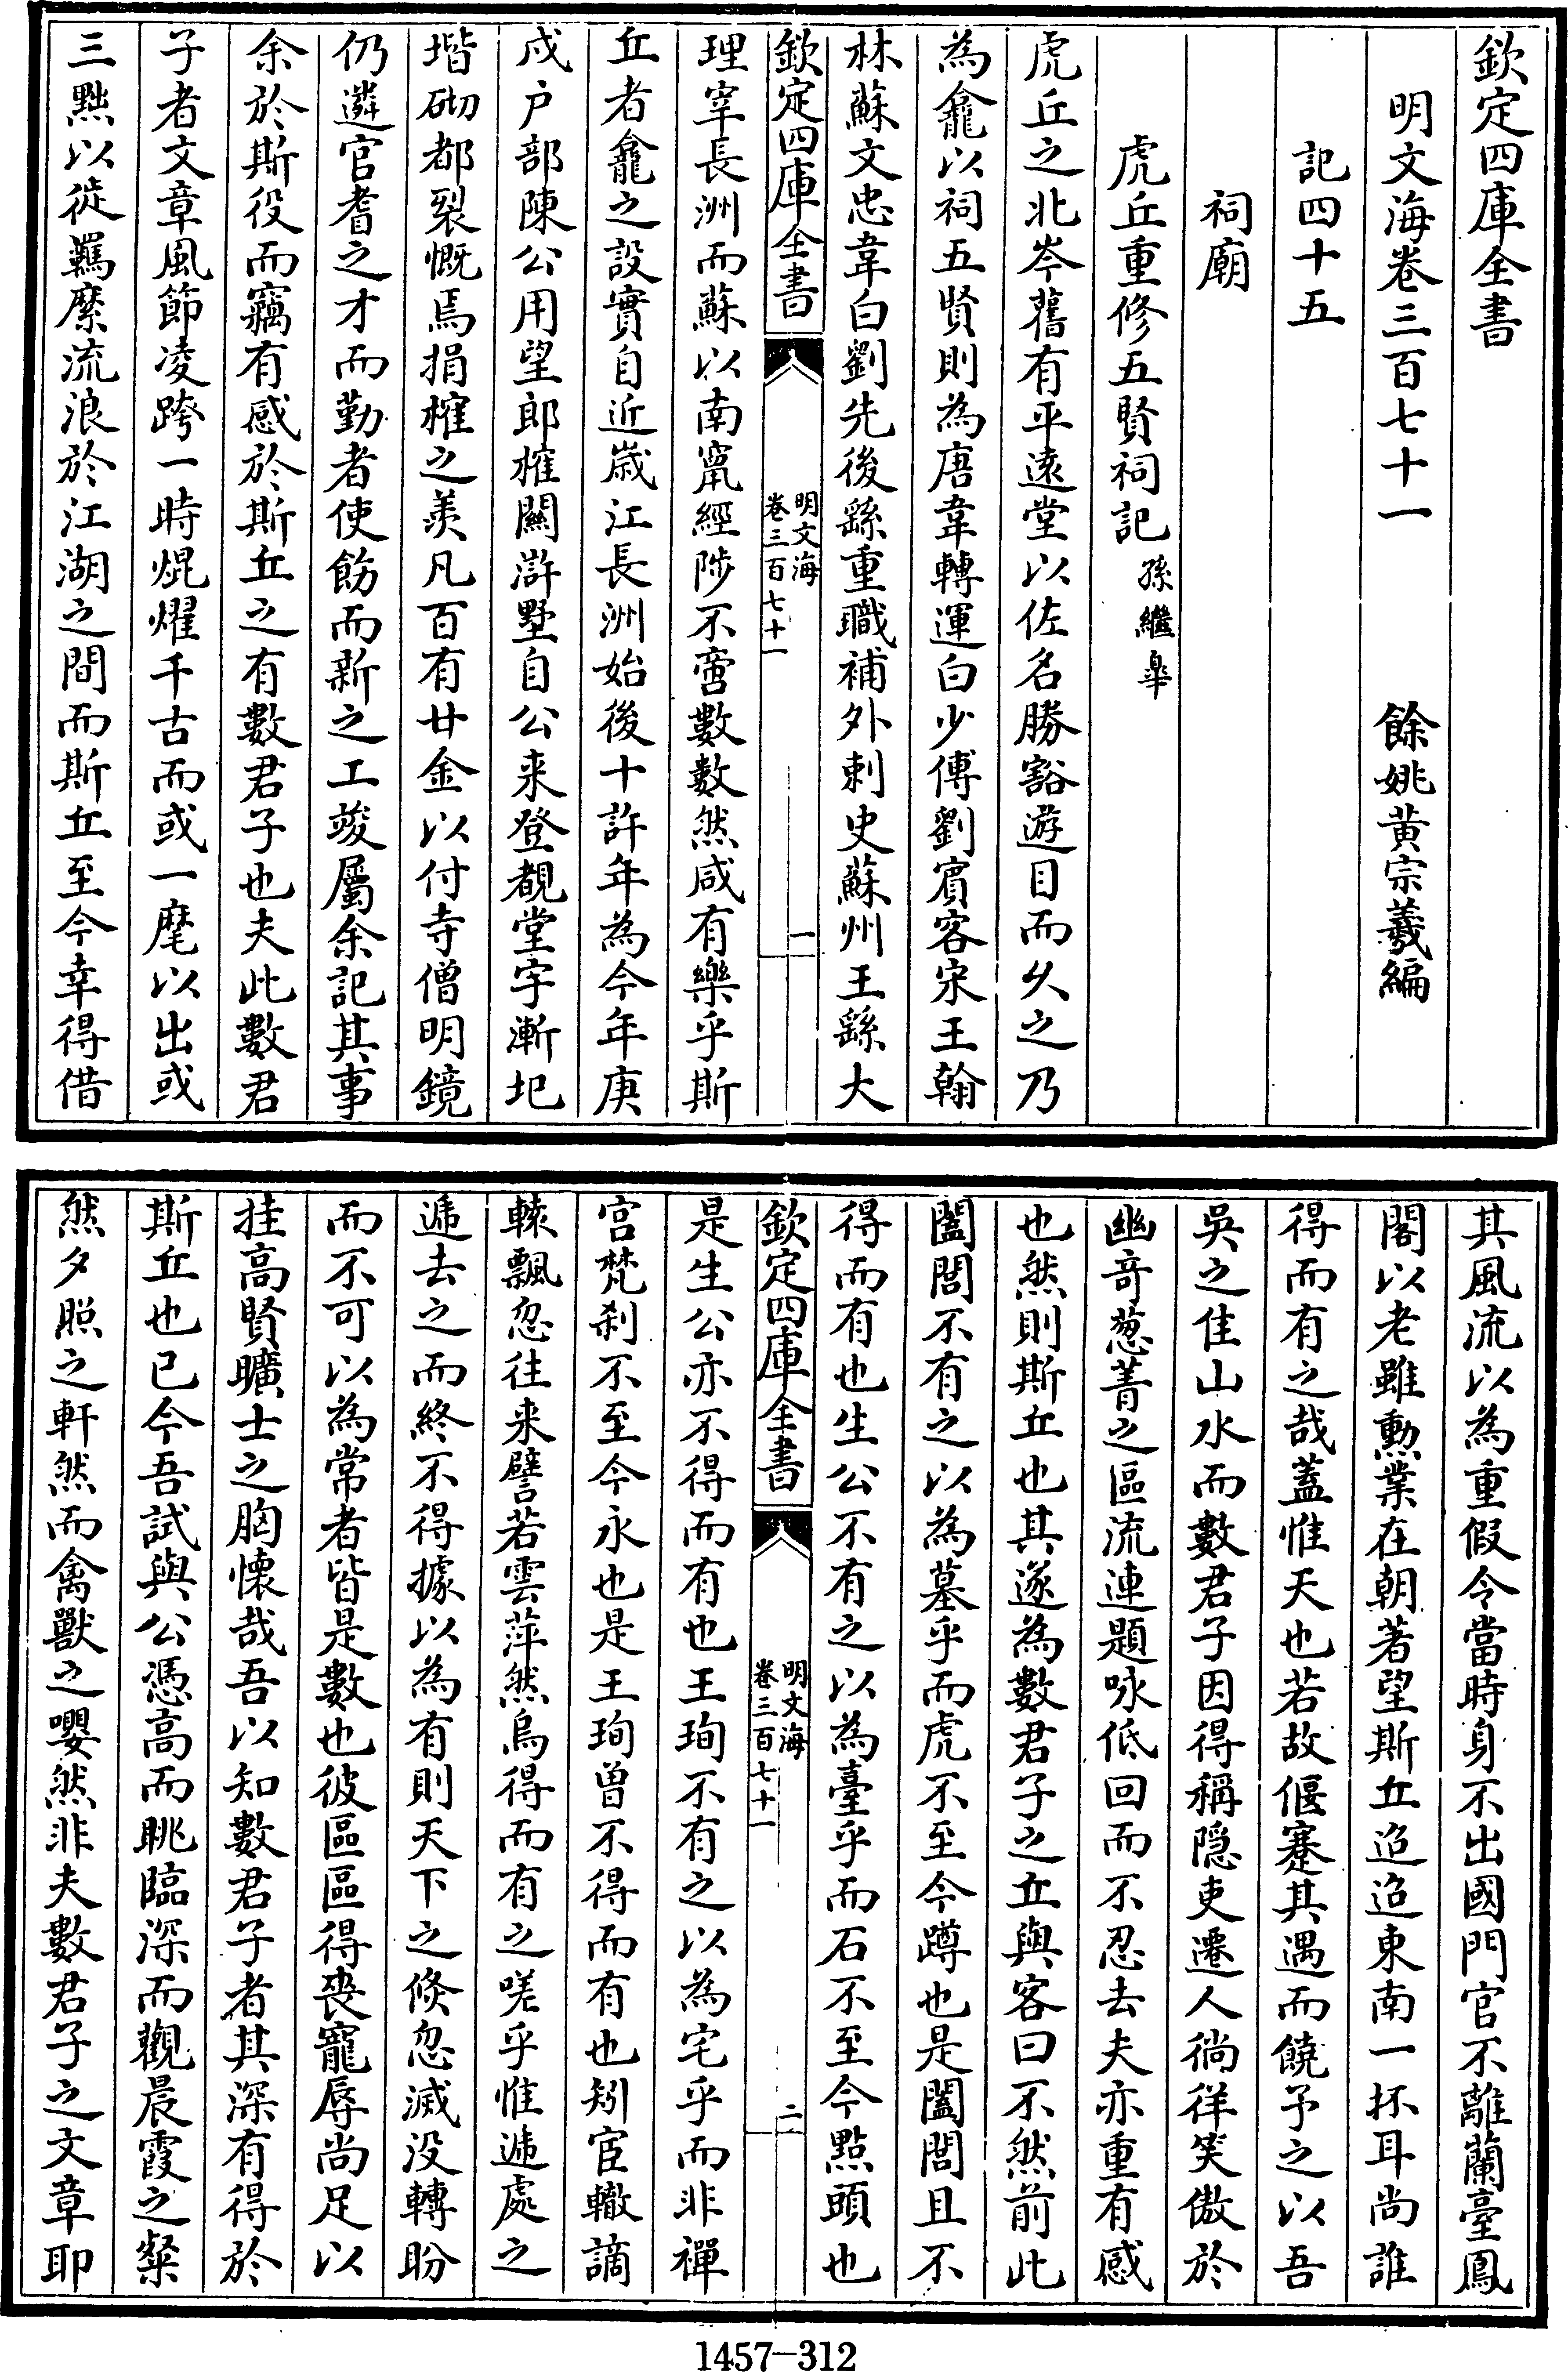 欽定四庫全書
明文海卷三百七十一　餘姚黃宗羲編
記四十五
祠廟
虎丘重修五賢祠記孫繼皐
虎丘之北岑舊有平遠堂以佐名勝豁遊目而乆之乃
為龕以祠五賢則為唐韋轉運白少傅劉賓客宋王翰
林蘇文忠韋白劉先後繇重職補外刺史蘇州王繇大
欽定四庫全書
明文海
卷三百七十一
一
理宰長洲而蘇以南竄經陟不啻數數然咸有樂乎斯
丘者龕之設實自近歲江長洲始後十許年為今年庚
戍户部陳公用望郎榷關滸墅自公来登覩堂宇漸圯
堦砌都裂慨焉捐榷之羡凡百有廿金以付寺僧明鏡
仍遴官耆之才而勤者使飭而新之工竣屬余記其事
余於斯役而竊有感於斯丘之有數君子也夫此數君
子者文章風節凌跨一時焜燿千古而或一麾以出或
三黜以徙羈縻流浪於江湖之間而斯丘至今幸得借
其風流以為重假令當時身不出國門官不離蘭臺鳳
閣以老雖勲業在朝著望斯丘迢迢東南一抔耳尚誰
得而有之哉蓋惟天也若故偃蹇其遇而饒予之以吾
吳之佳山水而數君子因得稱隠吏遷人徜徉笑傲於
幽奇葱菁之區流連題咏低回而不忍去夫亦重有感
也然則斯丘也其遂為數君子之丘與客曰不然前此
闔閭不有之以為墓乎而虎不至今蹲也是闔閭且不
得而有也生公不有之以為臺乎而石不至今㸃頭也
欽定四庫全書
明文海
卷三百七十一
二
是生公亦不得而有也王珣不有之以為宅乎而非禪
宫梵刹不至今永也是王珣曽不得而有也矧宦轍謫
轅飄忽往来譬若雲萍然烏得而有之嗟乎惟遞處之
遞去之而終不得據以為有則天下之倐忽滅没轉盼
而不可以為常者皆是數也彼區區得喪寵辱尚足以
挂高賢曠士之胸懐哉吾以知數君子者其深有得於
斯丘也已今吾試與公憑高而眺臨深而觀晨霞之粲
然夕照之軒然而禽獸之嚶然非夫數君子之文章耶
1457—312